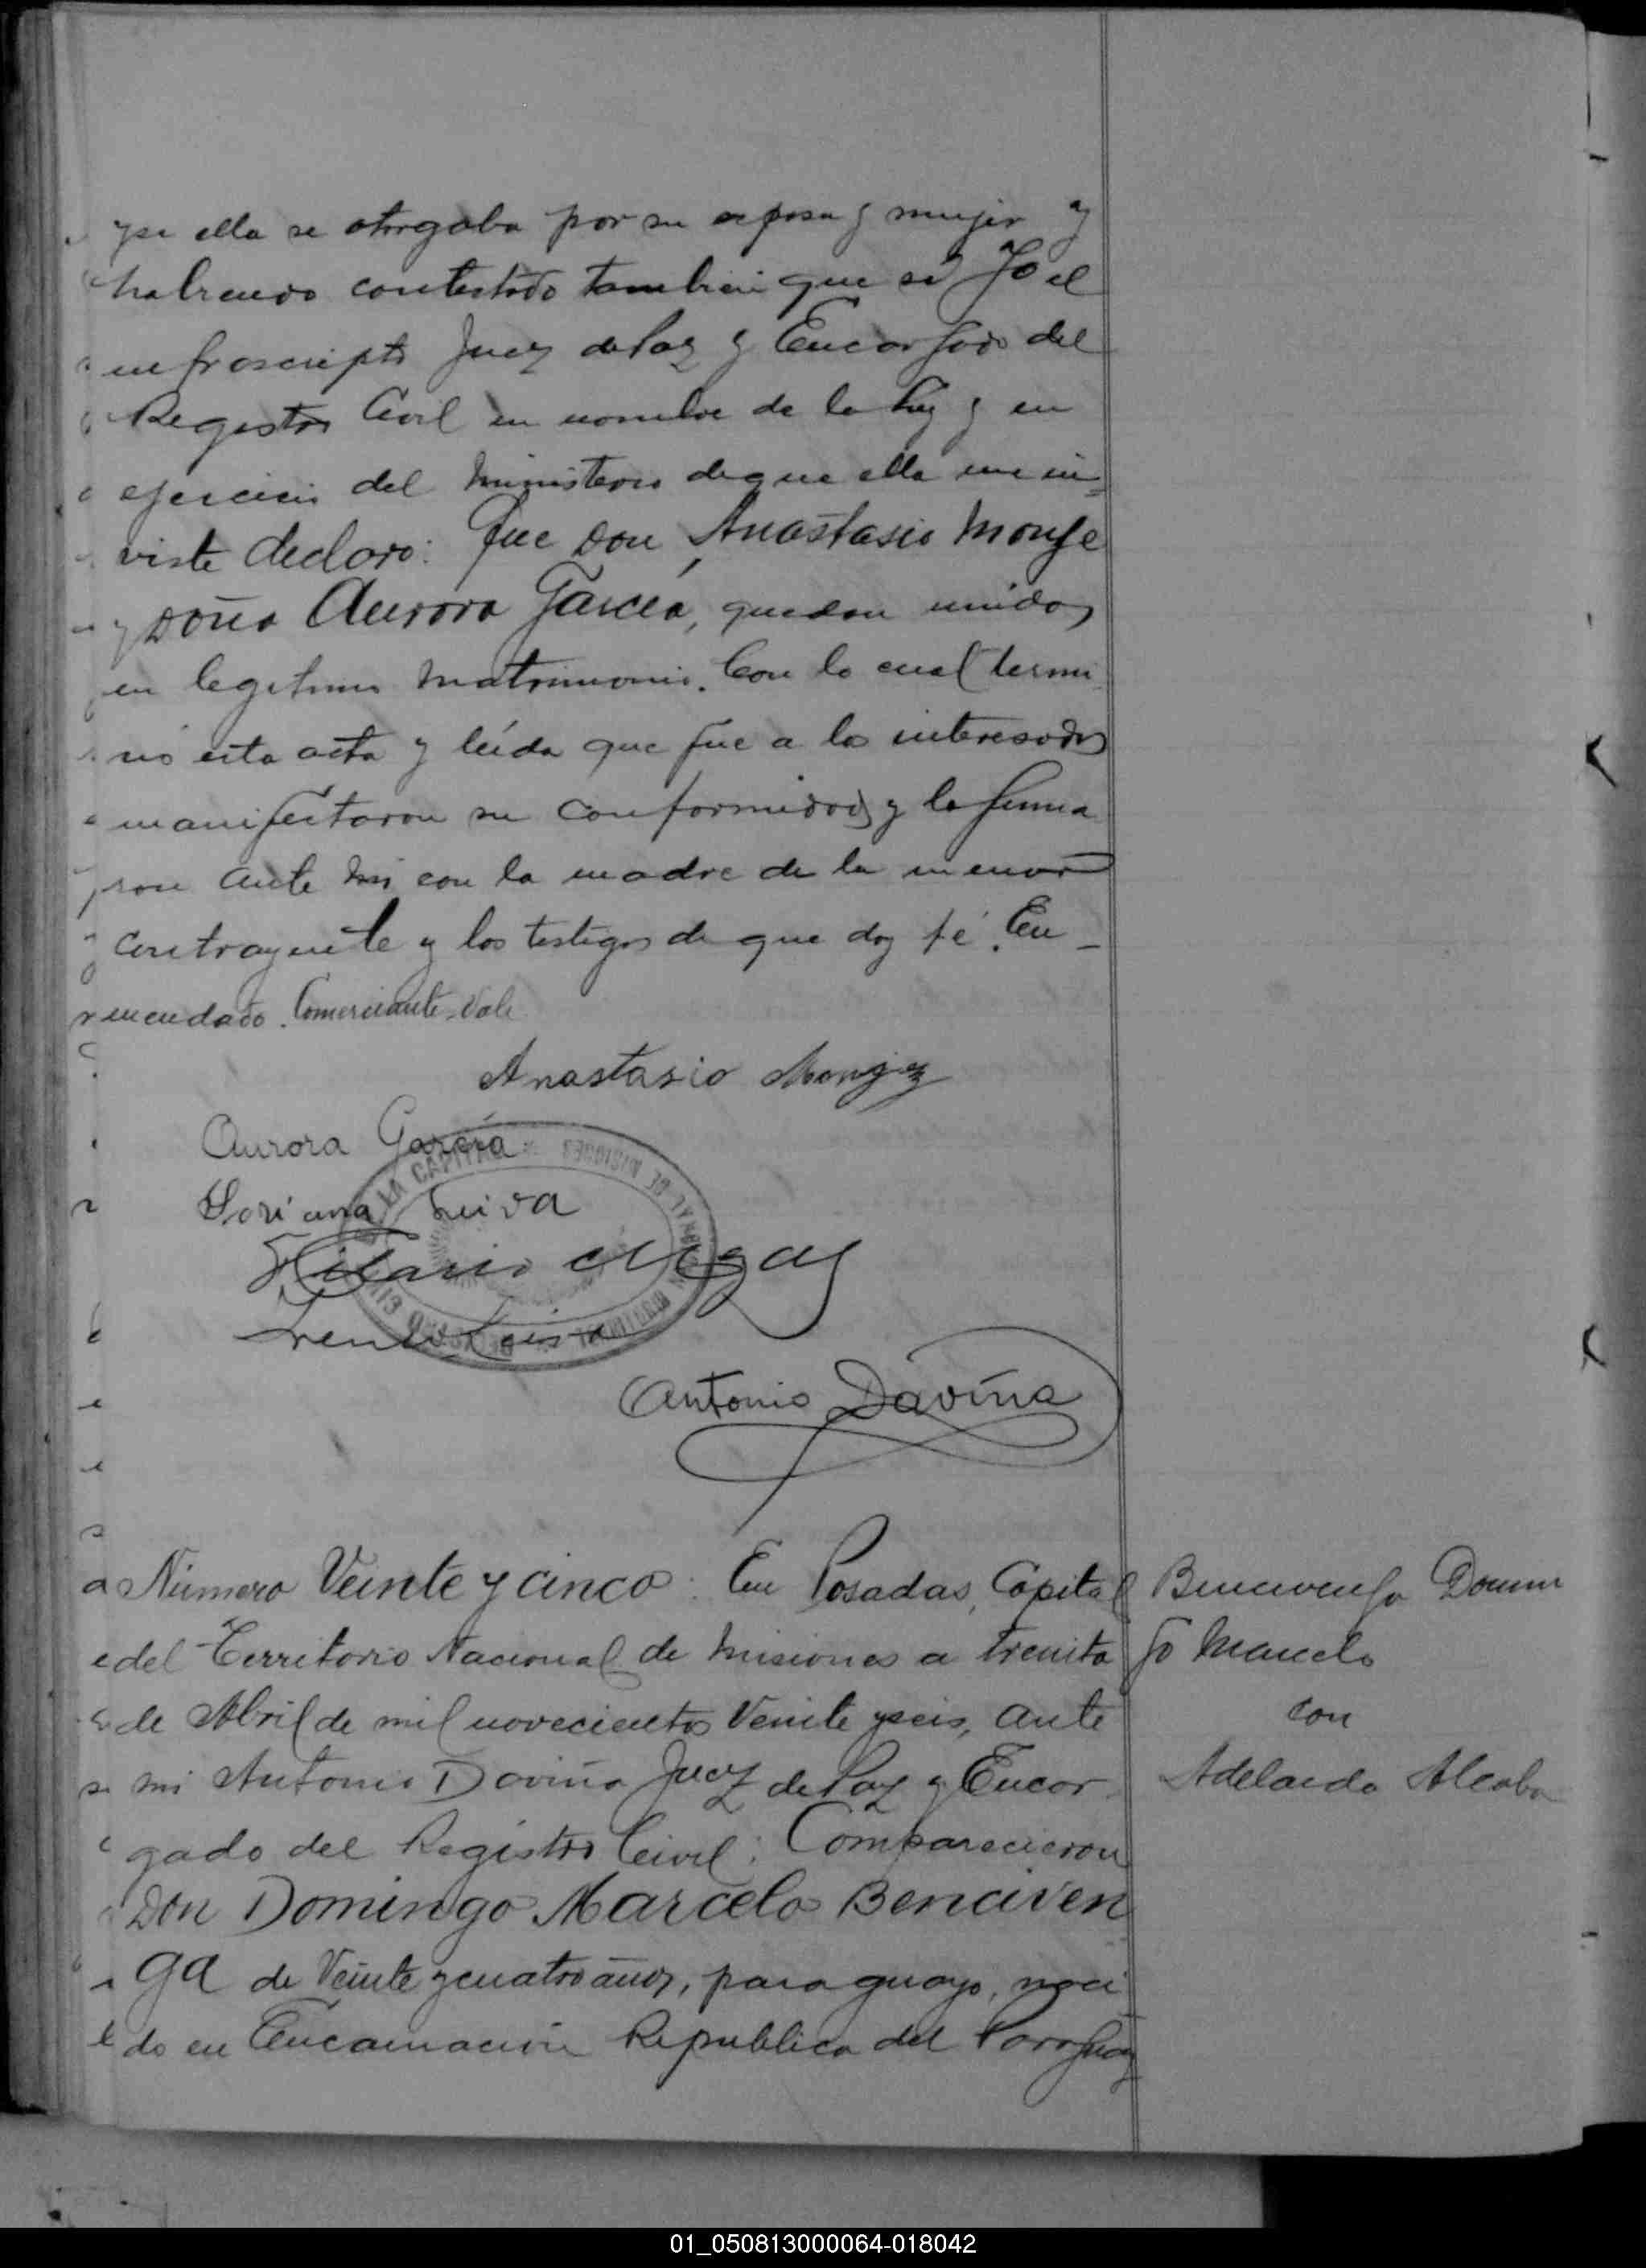 y si ella se otorgaba por su esposa y mujer y
habiendo contestado tambien que si Yo el
infrascripto Juez de Paz y Encargado del
Registro Civil en nombre de la ley y en
ejercicio del ministerio de que ella me in-
viste declaro: Que Don Anastasio Monge
y Doña Aurora García, quedan unidos
en legitimo matrimonio. Con lo cual termi
nó esta acta y leída que fue a los interesados
manifestaron su conformidad y la firma
ron ante mi con la madre de la menor
contrayente y los testigos de que doy fé. En-
mendado. Comerciante. Vale
Anastasio Mongez
Aurora García
Leiva
Hilario
Antonio Daviña
Número Veinte y cinco. En Posadas, Capital
del Territorio Nacional de Misiones a treinta
de Abril de mil novecientos Veinte y seis, ante
mi Antonio Daviña Juez de Paz y Encar
gado del Registro Civil: Comparecieron
Don Domingo Marcelo Benciven
ga de Veinte y cuatro años, paraguayo, naci
do en Encarnación Republica del Paraguay
Bencivenga Domin
go Marcelo
con
Adelaida
01_050813000064-018042